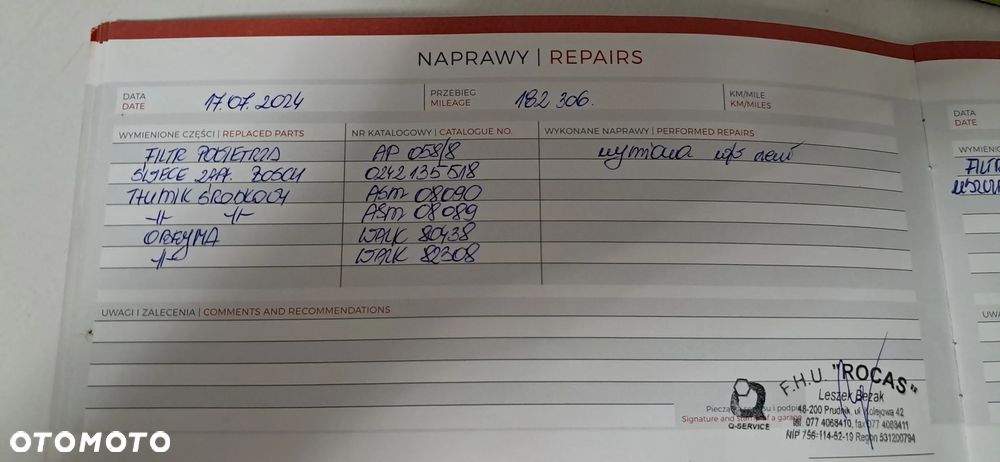 NAPRAWY | REPAIRS
DATA
DATE
17.07.2024
PRZEBIEG
MILEAGE
182 306.
KM/MILE
KM/MILES
WYMIENIONE CZĘŚCI | REPLACED PARTS
NR KATALOGOWY | CATALOGUE NO.
WYKONANE NAPRAWY | PERFORMED REPAIRS
FILTR POWIETRZA AP 058/8 wymiana w/s
ŚWIECE ZAP. BOSCH 0242135518
TŁUMIK ŚRODKOWY ASM 08090
-||- -||- ASM 08089
OBEJMA WALK 80438
-||- WALK 82308
UWAGI I ZALECENIA | COMMENTS AND RECOMMENDATIONS
Q-SERVICE
F.H.U. "ROCAS"
Leszek Bezak
48-200 Prudnik, ul. Kolejowa 42
tel. 077 4068410, fax 077 4083411
NIP 756-114-52-19 Regon 531200794
Signature and stamp of a garage
DATA
DATE
OTOMOTO